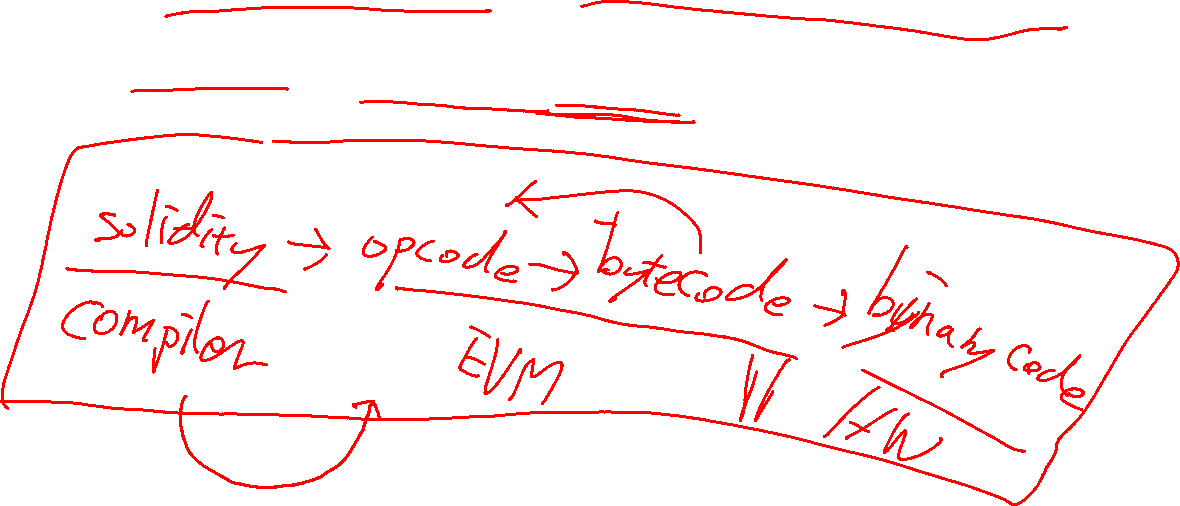 solidity → opcode → bytecode → binary code
compiler EVM H/W